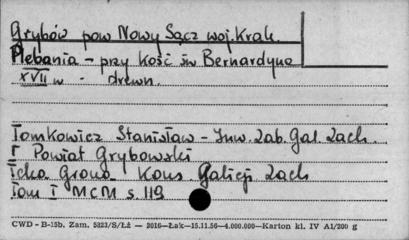 Grybów pow Nowy Sącz woj. Krak.
Plebania - przy kość św Bernardyna
XVII w - drewn.
Tomkowicz Stanisław - Inw. Zab. Gal. Zach.
I Powiat Grybowski
Teka Grona Kons Galicji Zach
Tom I MCM s. 119
CWD - B-15b. Zam. 5323/S/Łż — 2016—Łak—15.11.56—4.000.000—Karton kl. IV A1/200 g